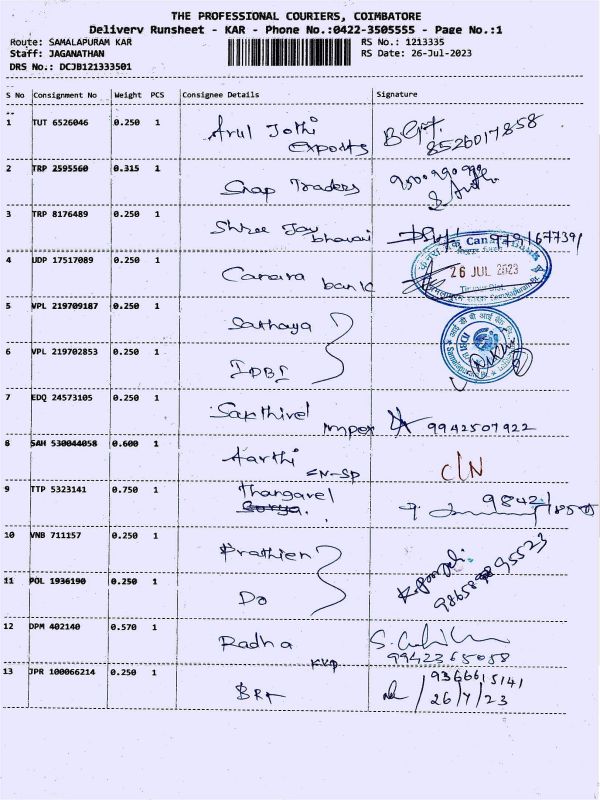 THE PROFESSIONAL COURIERS, COIMBATORE
Delivery Runsheet - KAR - Phone No.:0422-3505555 - Page No.:1
Route: SAMALAPURAM KAR RS No.: 1213335
Staff: JAGANATHAN RS Date: 26-Jul-2023
DRS No.: DCJB121333501
S No Consignment No Weight PCS Consignee Details Signature
1 TUT 6526046 0.250 1 Arul Jothi Exports 8526017858
2 TRP 2595560 0.315 1 Snap Traders
3 TRP 8176489 0.250 1 Shree Jay bhavani 9791677391
4 UDP 17517089 0.250 1 Canara bank 26 JUL 2023
5 VPL 219709187 0.250 1 Sathaya
6 VPL 219702853 0.250 1 IDBI
7 EDQ 24573105 0.250 1 Sapthivel Impex 9942507922
8 SAH 530044058 0.600 1 Aarthi C/N
9 TTP 5323141 0.750 1 Thangavel 9842
10 VNB 711157 0.250 1 Prathien
11 POL 1936190 0.250 1 Do
12 DPM 402140 0.570 1 Radha 9942365058
13 JPR 100066214 0.250 1 KVP 9366615141
26/7/23